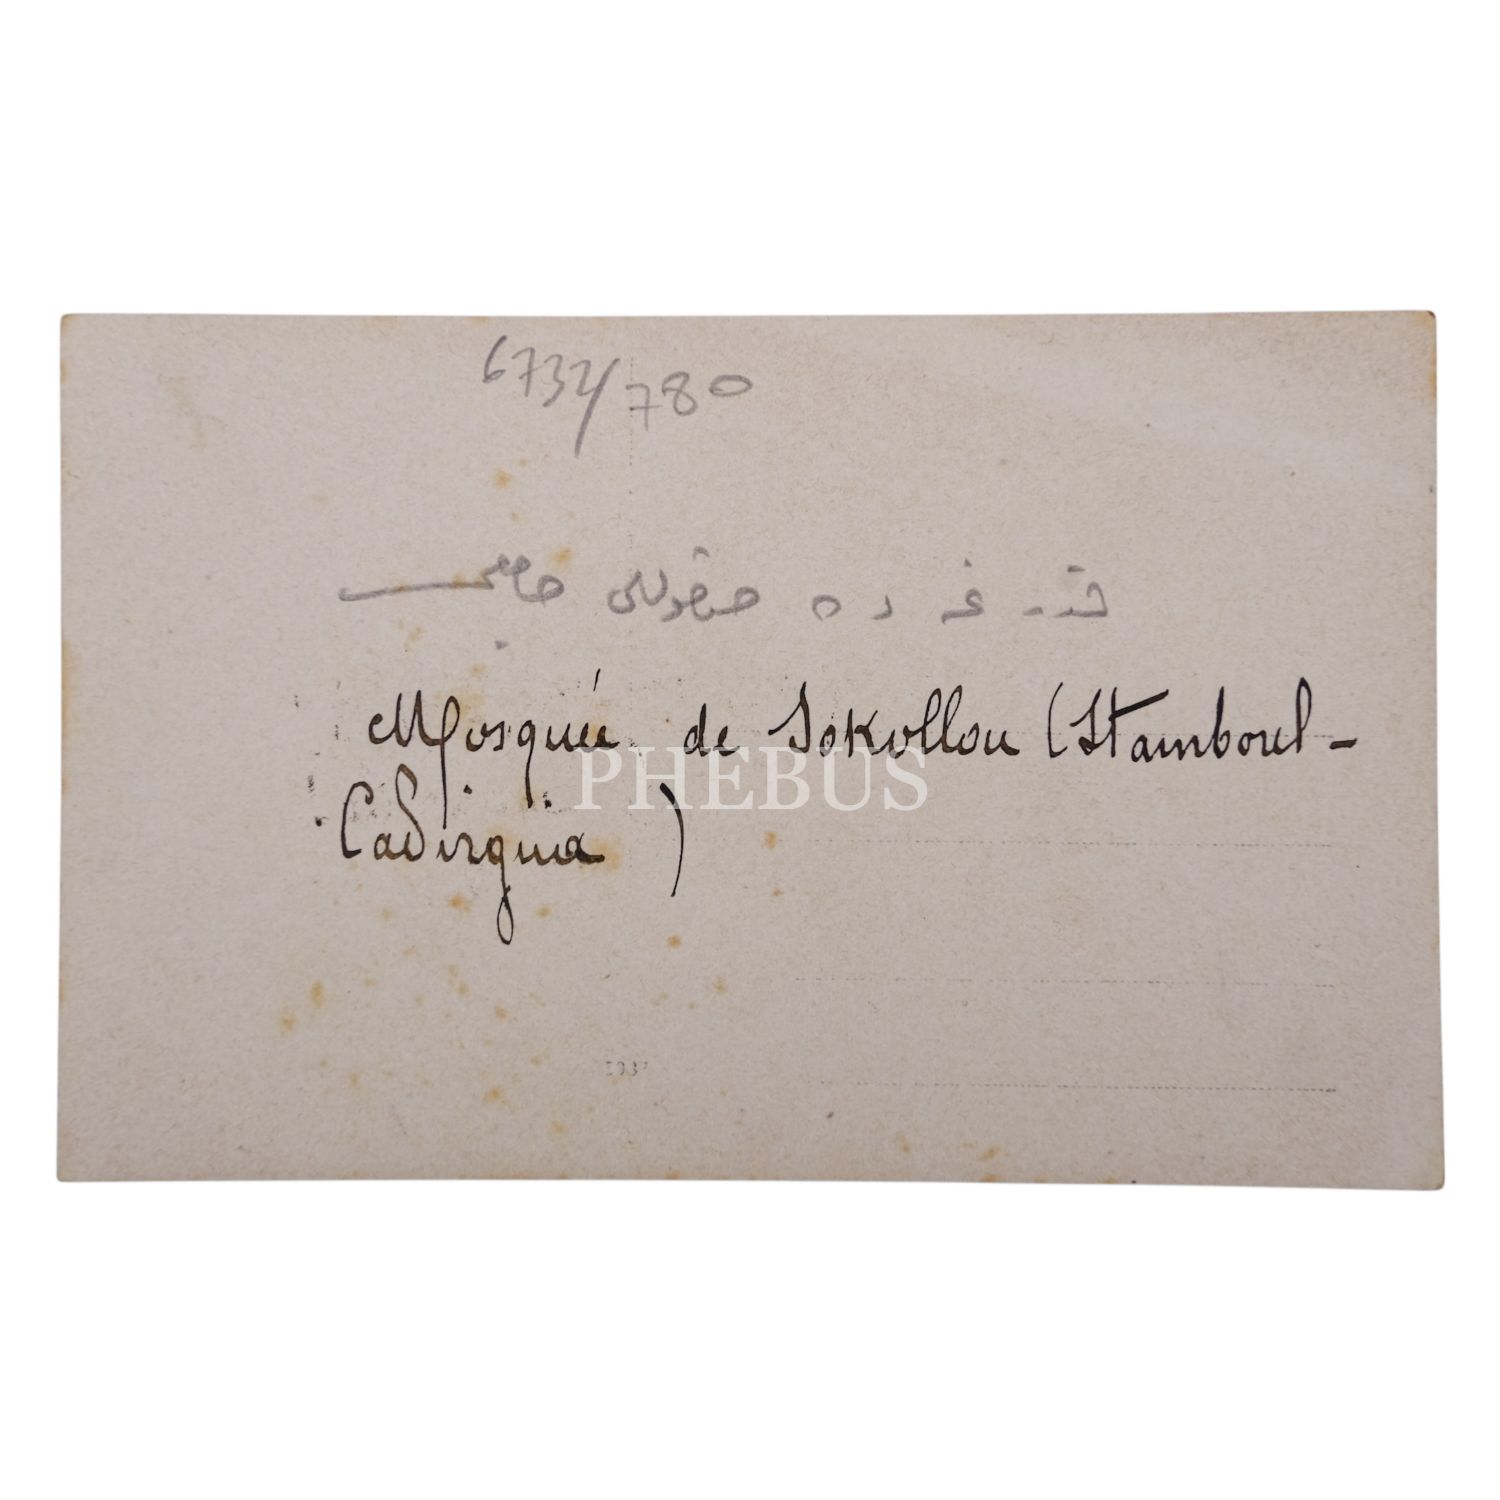 6732/780
قدرغه ده صقوللى جامعى
Mosquée de Sokollou (Stamboul-
Cadirguia)
PHEBUS